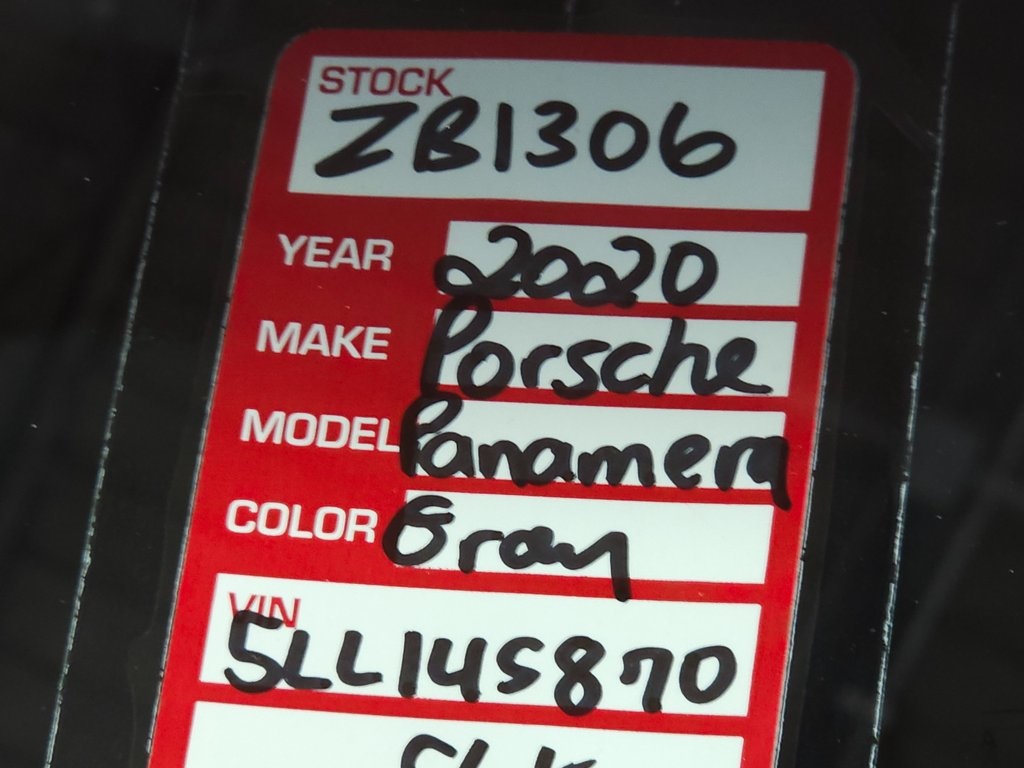 STOCK
ZB1306
YEAR 2020
MAKE Porsche
MODEL Panamera
COLOR Gray
VIN
5LL145870